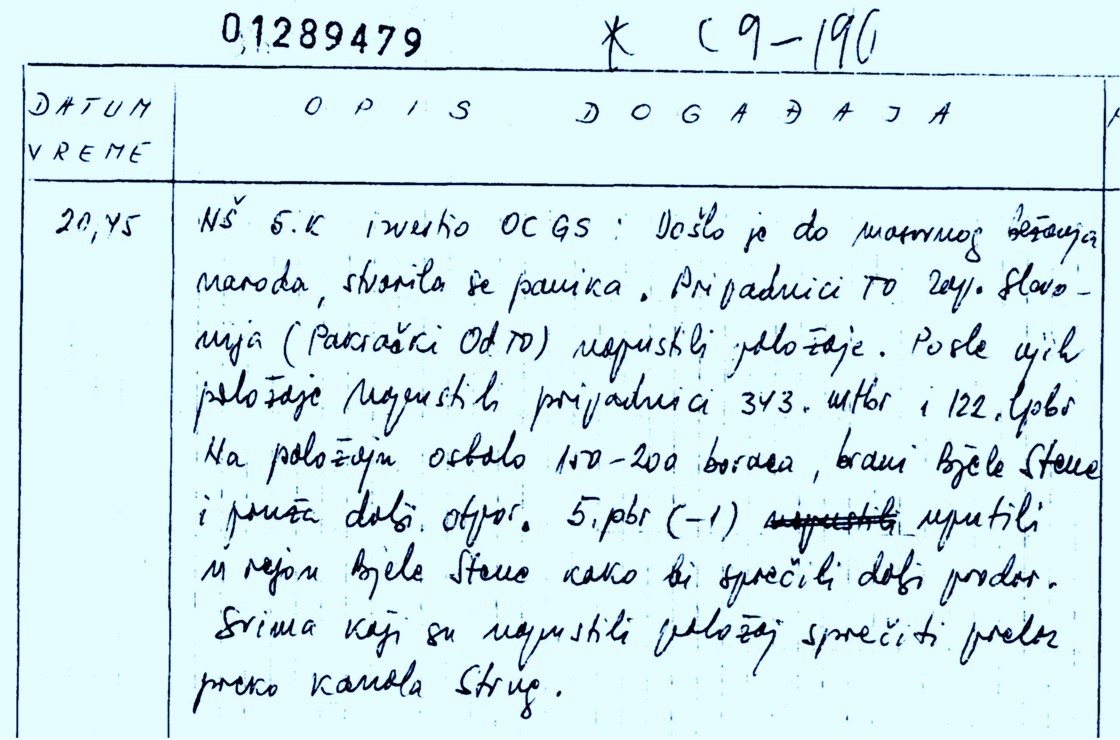 01289479 * C9-190
DATUM OPIS DOGAĐAJA
VREME
20,45 NŠ 5.K izvestio OC GS : Došlo je do masovnog bežanja
naroda, stvorila se panika. Pripadnici TO Zap. Slavo-
nija (Pakrački Od TO) napustili položaje. Posle njih
položaje napustili pripadnici 343. mtbr i 122. lpbr
Na položaju ostalo 150-200 boraca, brani Bjele Stene
i pruža dalji otpor. 5. pbr (-1) napustili uputili
u rejon Bjele Stene kako bi sprečili dalji prodor.
Svima koji su napustili položaj sprečiti prelaz
preko kanala Strug.